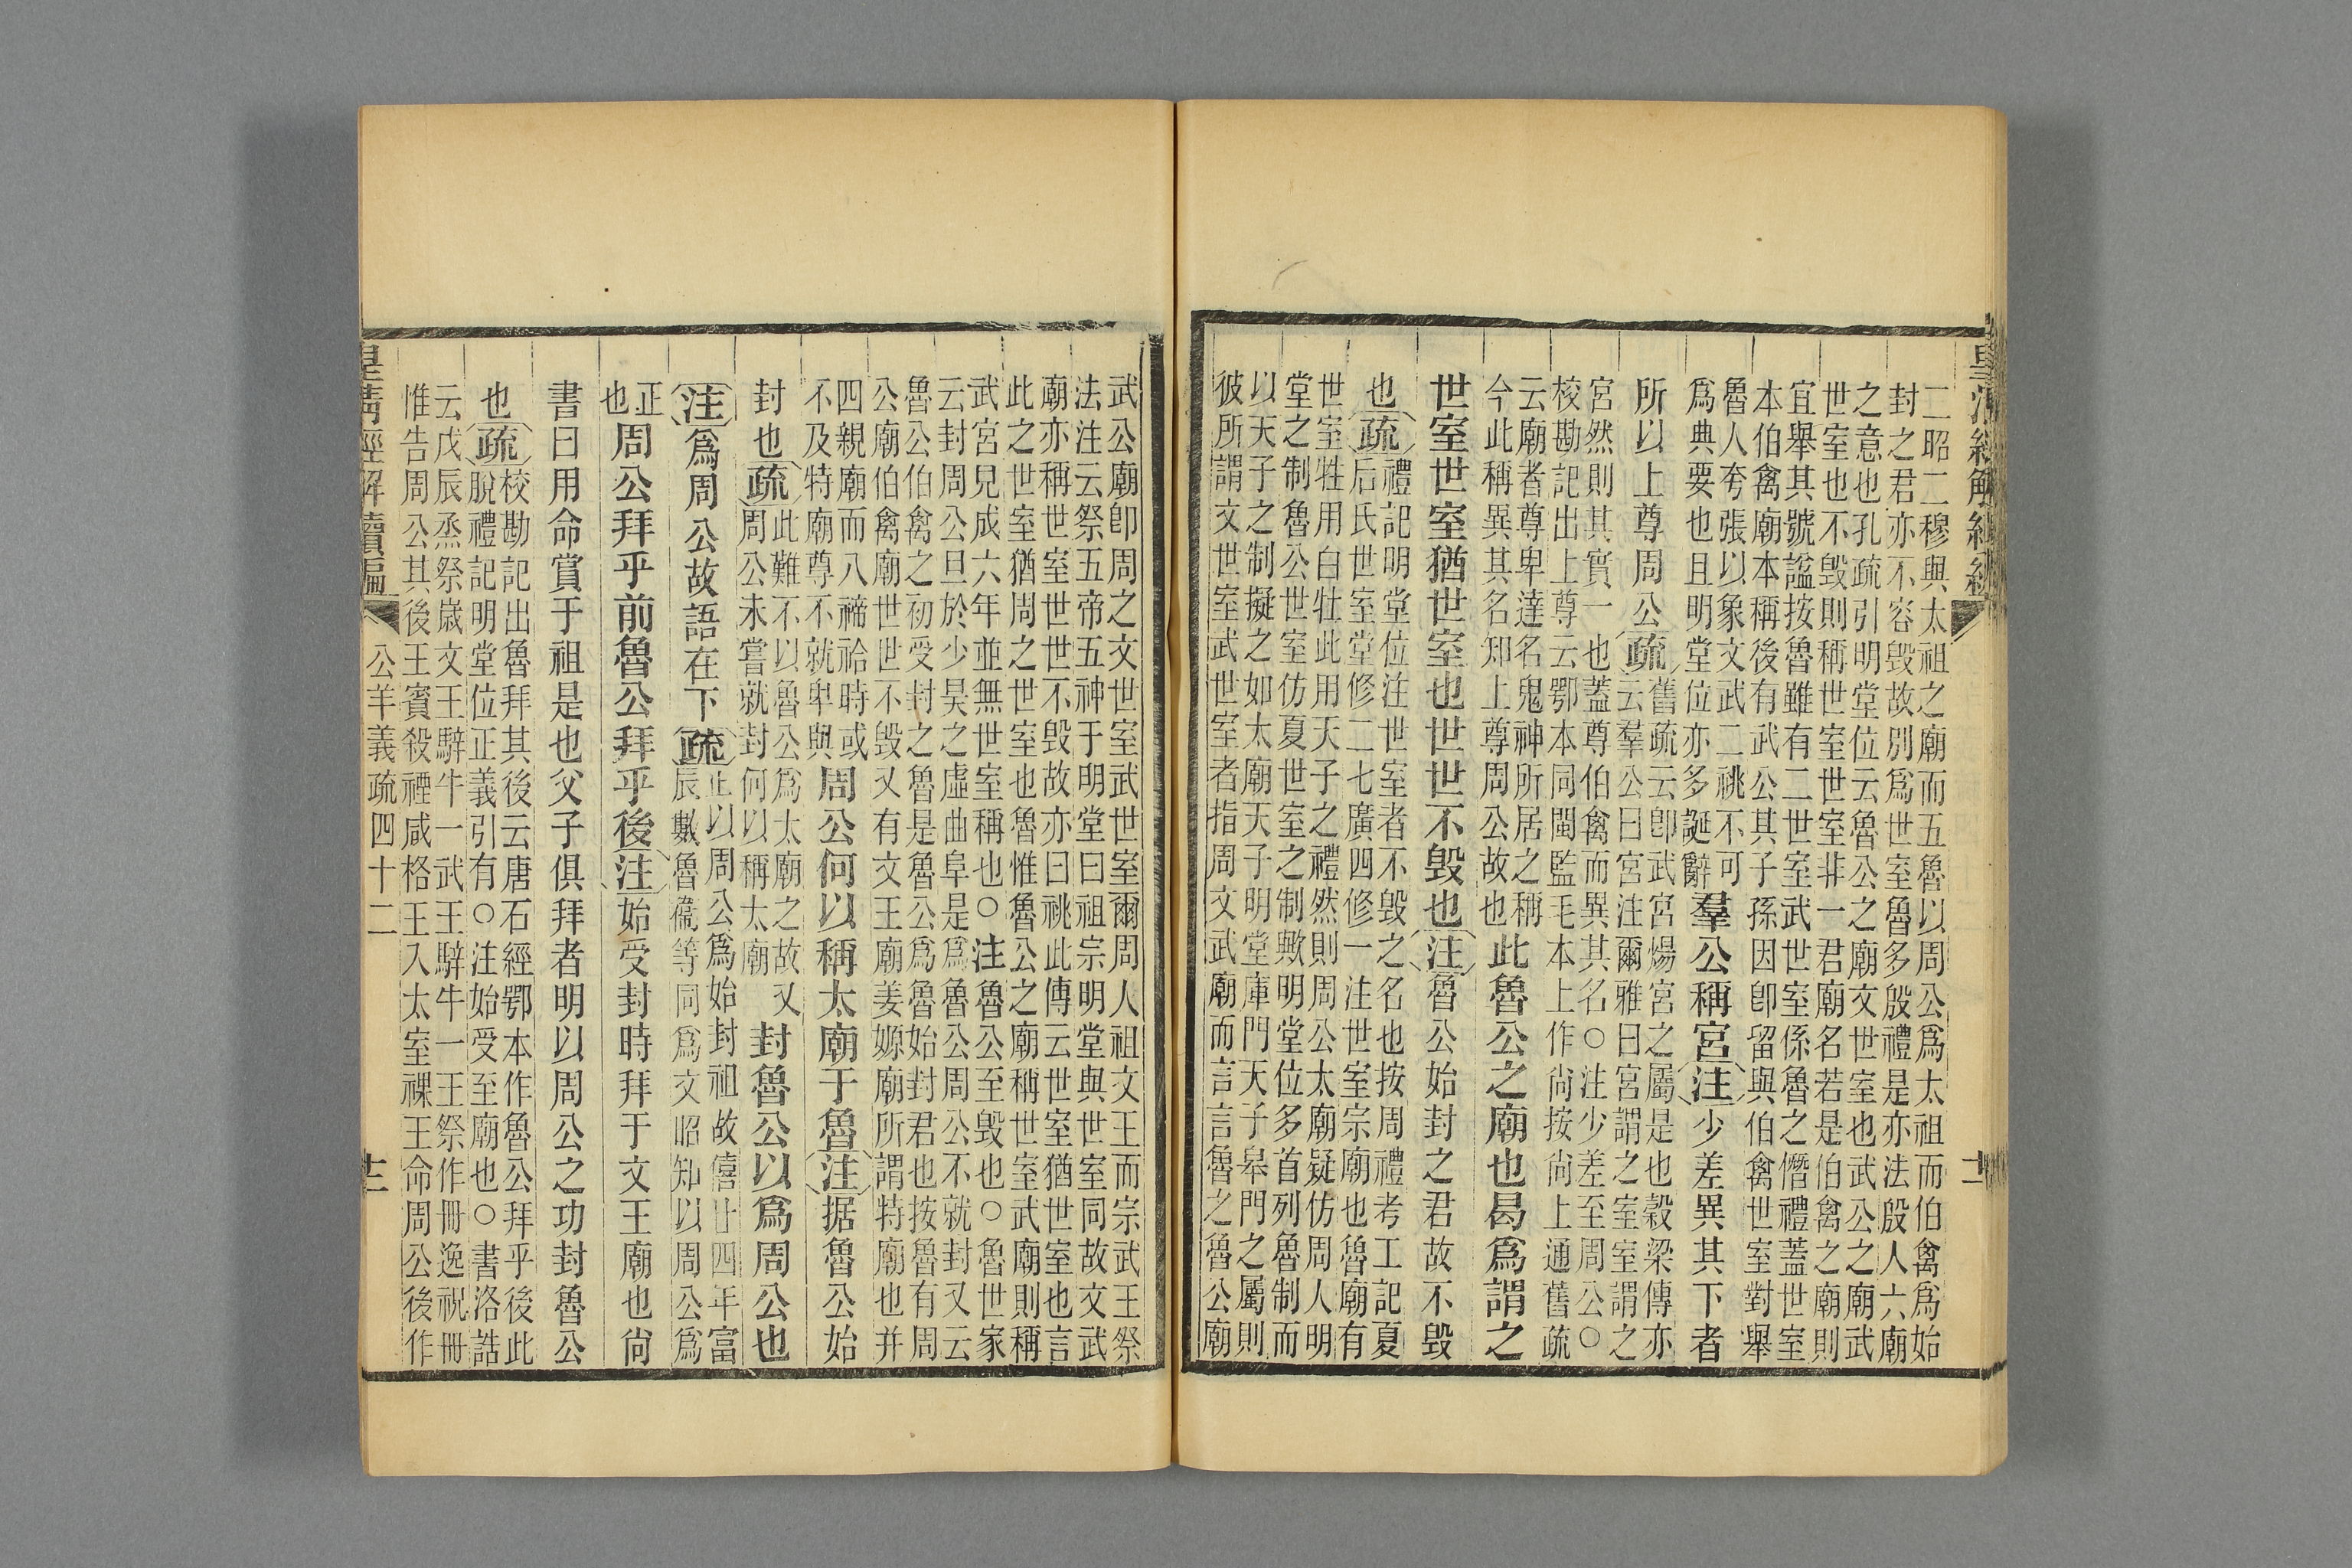 二昭二穆與太祖之廟而五魯以周公爲太祖而伯禽爲始
封之君亦不容毀故別爲世室魯多殷禮是亦法殷人六廟
之意也孔疏引明堂位云魯公之廟文世室也武公之廟武
世室也不毀則稱世室世室非一君廟名若是伯禽之廟則
宜舉其號謚按魯雖有二世室武世室係魯之僭禮蓋世室
本伯禽廟本稱後有武公其子孫因卽留與伯禽世室對舉
魯人夸張以象文武二祧不可
爲典要也且明堂位亦多誕辭
羣公稱宮注少差異其下者
所以上尊周公疏
舊疏云卽武宮煬宮之屬是也穀梁傳亦
云羣公曰宮注爾雅曰宮謂之室室謂之
宮然則其實一也蓋尊伯禽而異其名○注少差至周公○
校勘記出上尊云鄂本同閩監毛本上作尙按尙上通舊疏
云廟者尊卑達名鬼神所居之稱
今此稱異其名知上尊周公故也
此魯公之廟也曷爲謂之
世室世室猶世室也世世不毀也注魯公始封之君故不毀
也疏
禮記明堂位注世室者不毀之名也按周禮考工記夏
后氏世室堂修二七廣四修一注世室宗廟也魯廟有
世室牲用白牡此用天子之禮然則周公太廟疑仿周人明
堂之制魯公世室仿夏世室之制歟明堂位多首列魯制而
以天子之制擬之如太廟天子明堂庫門天子皋門之屬則
彼所謂文世室武世室者指周文武廟而言言魯之魯公廟
武公廟卽周之文世室武世室爾周人祖文王而宗武王祭
法注云祭五帝五神于明堂曰祖宗明堂與世室同故文武
廟亦稱世室世世不毀故亦曰祧此傳云世室猶世室也言
此之世室猶周之世室也魯惟魯公之廟稱世室武廟則稱
武宮見成六年並無世室稱也○注魯公至毀也○魯世家
云封周公旦於少昊之虛曲阜是爲魯公周公不就封又云
魯公伯禽之初受封之魯是魯公爲魯始封君也按魯有周
公廟伯禽廟世世不毀又有文王廟姜嫄廟所謂特廟也并
四親廟而八禘祫時或
不及特廟尊不就卑與
周公何以稱太廟于魯注据魯公始
封也疏
此難不以魯公爲太廟之故又
周公未嘗就封何以稱太廟
封魯公以爲周公也
注爲周公故語在下疏
正以周公爲始封祖故僖廿四年富
辰數魯衞等同爲文昭知以周公爲
正
也
周公拜乎前魯公拜乎後注始受封時拜于文王廟也尙
書曰用命賞于祖是也父子俱拜者明以周公之功封魯公
也疏
校勘記出魯拜其後云唐石經鄂本作魯公拜乎後此
脫禮記明堂位正義引有○注始受至廟也○書洛誥
云戊辰烝祭歲文王騂牛一武王騂牛一王祭作冊逸祝冊
惟告周公其後王賓殺禋咸格王入太室祼王命周公後作
皇淸經解續編
公羊義疏四十二